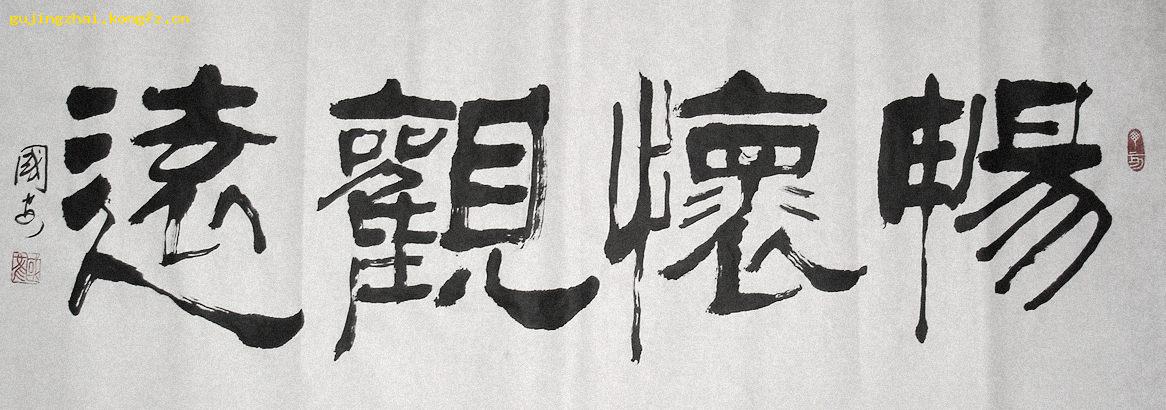 gujingzhai.kongfz.cn
暢懷觀遠
國安